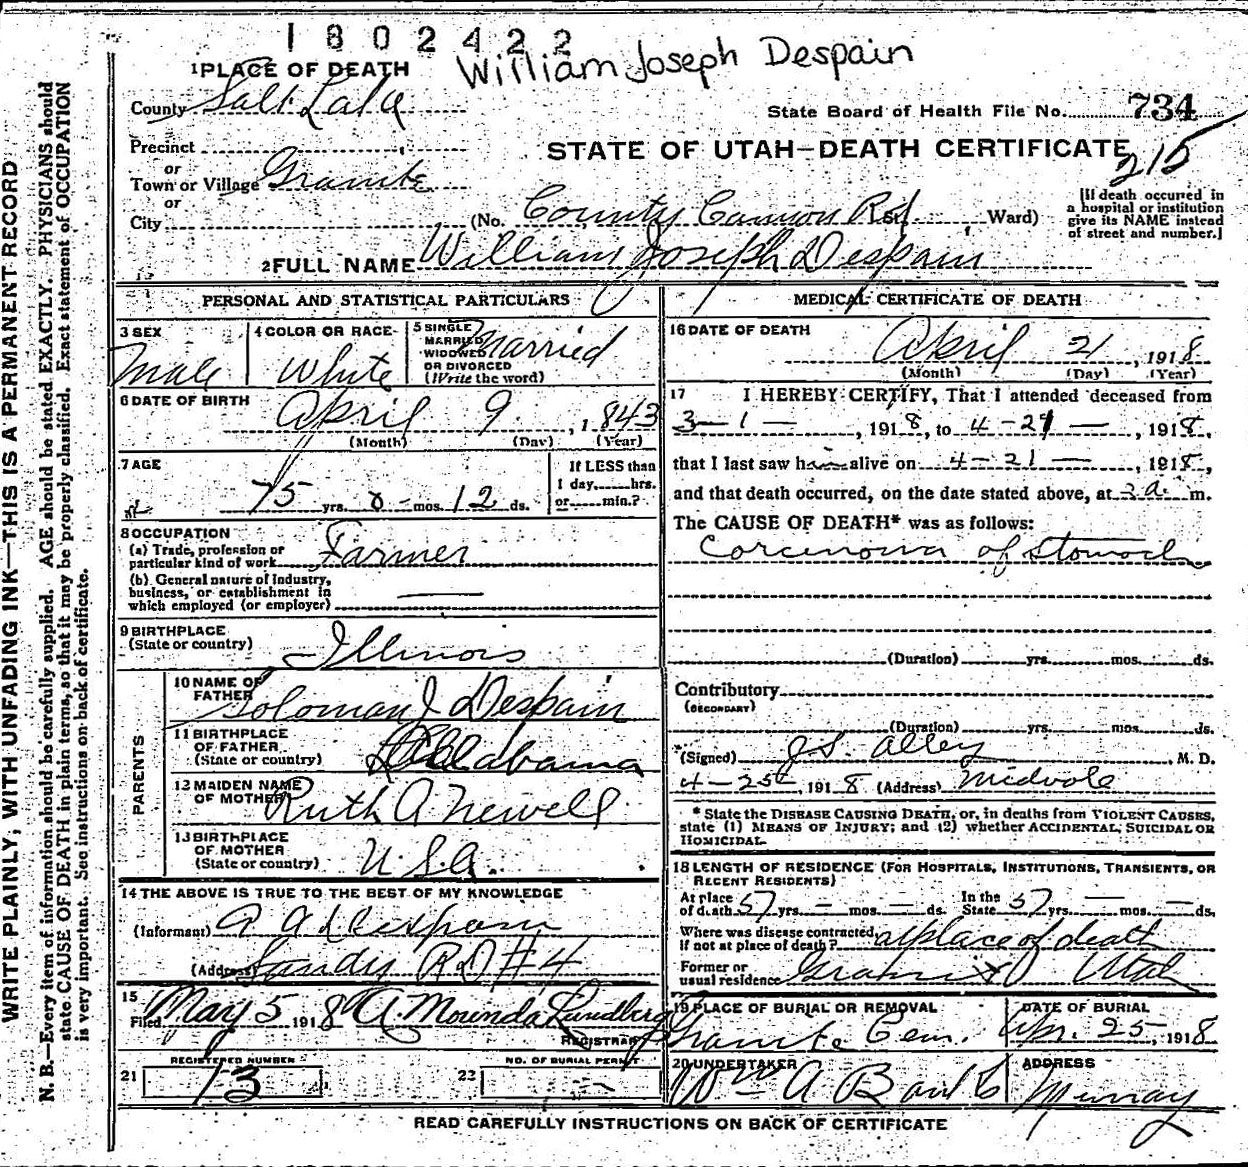 1802422
William Joseph Despain
1 PLACE OF DEATH
County Salt Lake
State Board of Health File No. 734
Precinct
STATE OF UTAH—DEATH CERTIFICATE
215
or
Town or Village Granite
or
City
(No. County Cannon Rd St. Ward)
[If death occurred in
a hospital or institution
give its NAME instead
of street and number.]
2 FULL NAME William Joseph Despain
PERSONAL AND STATISTICAL PARTICULARS
3 SEX
Male
4 COLOR OR RACE
White
5 SINGLE
MARRIED
WIDOWED
OR DIVORCED
(Write the word)
Married
6 DATE OF BIRTH
April 9, 1843
(Month) (Day) (Year)
7 AGE
75 yrs. 0 mos. 12 ds.
If LESS than
1 day, hrs.
or min.?
8 OCCUPATION
(a) Trade, profession or
particular kind of work Farmer
(b) General nature of industry,
business, or establishment in
which employed (or employer)
9 BIRTHPLACE
(State or country)
Illinois
PARENTS
10 NAME OF
FATHER
Soloman J Despain
11 BIRTHPLACE
OF FATHER
(State or country)
Alabama
12 MAIDEN NAME
OF MOTHER
Ruth A Newell
13 BIRTHPLACE
OF MOTHER
(State or country)
U.S.A.
14 THE ABOVE IS TRUE TO THE BEST OF MY KNOWLEDGE
(Informant) A A Despain
(Address) Sandy RD #4
15
Filed May 5 1918 A. Mourinda Lundberg
REGISTRAR
REGISTERED NUMBER
21 13
NO. OF BURIAL PERMIT
22 —
MEDICAL CERTIFICATE OF DEATH
16 DATE OF DEATH
April 21, 1918
(Month) (Day) (Year)
17 I HEREBY CERTIFY, That I attended deceased from
3-1-, 1918, to 4-21-, 1918,
that I last saw him alive on 4-21-, 1918,
and that death occurred, on the date stated above, at 3 a. m.
The CAUSE OF DEATH* was as follows:
Corcinoma of Stomach
(Duration) yrs. mos. ds.
Contributory
(SECONDARY)
(Duration) yrs. mos. ds.
(Signed) J.S. Alley, M. D.
4-25, 1918 (Address) Midvale
* State the DISEASE CAUSING DEATH, or, in deaths from VIOLENT CAUSES,
state (1) MEANS OF INJURY; and (2) whether ACCIDENTAL, SUICIDAL OR
HOMICIDAL.
18 LENGTH OF RESIDENCE (FOR HOSPITALS, INSTITUTIONS, TRANSIENTS, OR
RECENT RESIDENTS)
At place
of death 57 yrs. — mos. — ds.
In the
State 57 yrs. — mos. — ds.
Where was disease contracted,
if not at place of death? at place of death
Former or
usual residence Granite Utah
19 PLACE OF BURIAL OR REMOVAL
Granite Cem.
DATE OF BURIAL
Apr. 25, 1918
20 UNDERTAKER
Wm A Banks
ADDRESS
Murray
READ CAREFULLY INSTRUCTIONS ON BACK OF CERTIFICATE
WRITE PLAINLY, WITH UNFADING INK—THIS IS A PERMANENT RECORD
N. B.—Every item of information should be carefully supplied. AGE should be stated EXACTLY. PHYSICIANS should
state CAUSE OF DEATH in plain terms, so that it may be properly classified. Exact statement of OCCUPATION
is very important. See instructions on back of certificate.